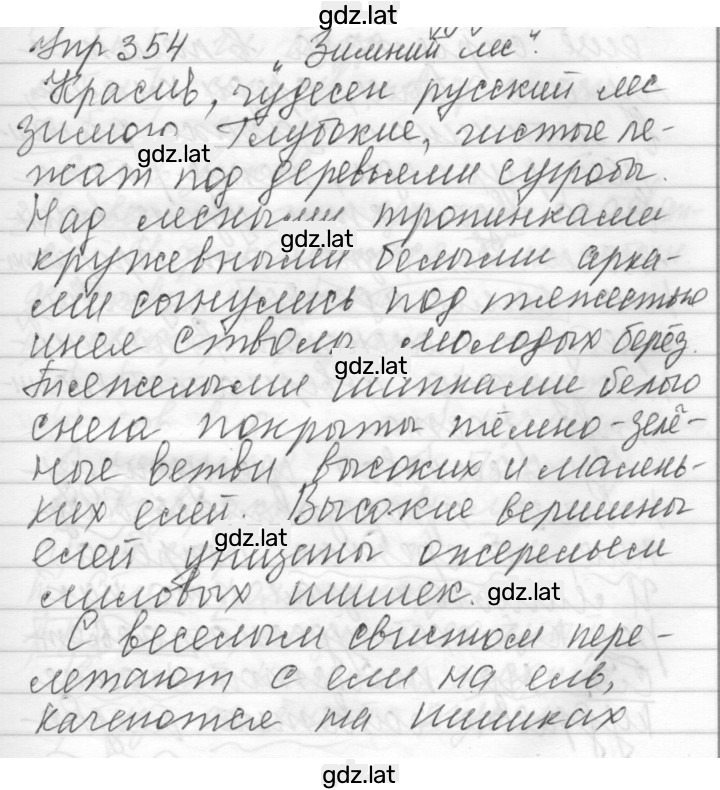 gdz.lat
Упр 354 "Зимний лес".
Красив, чудесен русский лес
зимою. Глубокие, чистые ле-
gdz.lat
жат под деревьями сугробы.
Над лесными тропинками
gdz.lat
кружевными белыми арка-
ми согнулись под тяжестью
инея стволы молодых берёз.
gdz.lat
Тяжелыми шапками белого
снега покрыты тёмно-зелё-
ные ветви высоких и малень-
ких елей. Высокие вершины
gdz.lat
елей унизаны ожерельем
лиловых шишек. gdz.lat
С веселым свистом пере-
летают с ели на ель,
качаются на шишках
gdz.lat